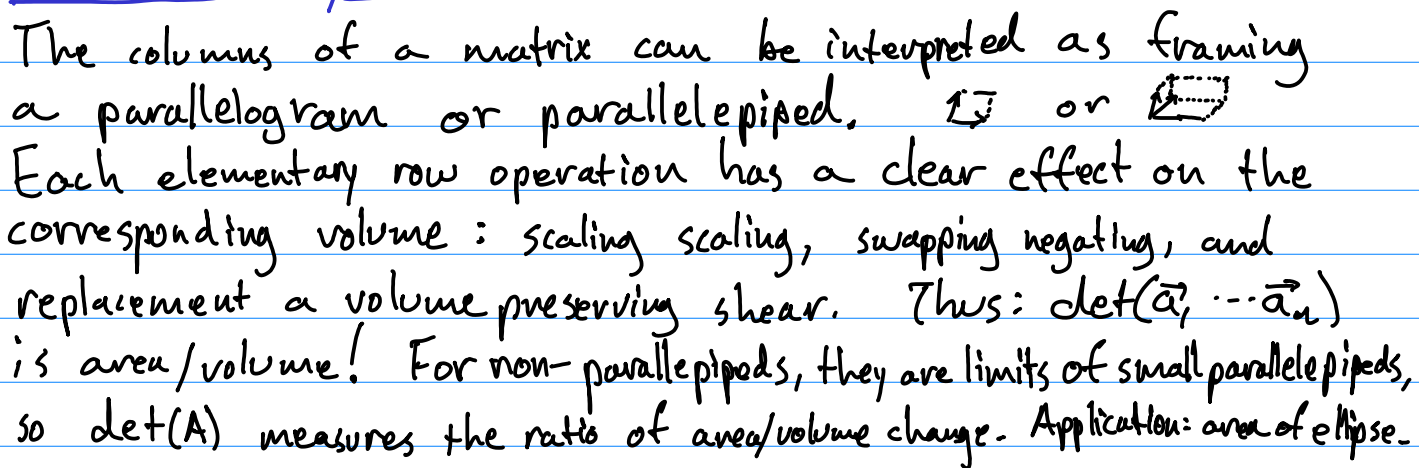 The columns of a matrix can be interpreted as framing
a parallelogram or parallelepiped. or
Each elementary row operation has a clear effect on the
corresponding volume : scaling scaling, swapping negating, and
replacement a volume preserving shear. Thus: det(a⃗₁ ⋯ a⃗ₙ)
is area/volume! For non-parallepipeds, they are limits of small parallelepipeds,
so det(A) measures the ratio of area/volume change. Application: area of ellipse.